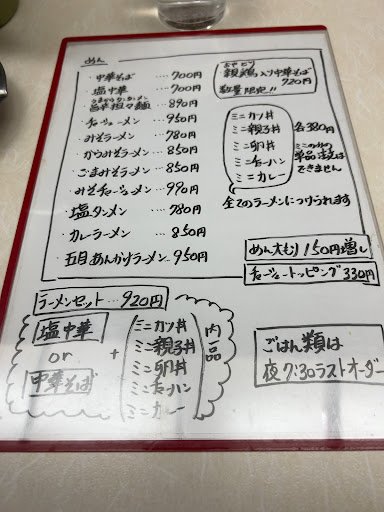 めん
・中華そば ‥‥ 700円
・塩中華 ‥‥ 700円
うまからタンタンメン
・旨辛担々麺 … 890円
・チャーシューメン 950円
・みそラーメン … 780円
・からみそラーメン … 850円
・ごまみそラーメン … 850円
・みそチャーシューメン … 990円
・塩タンメン … 780円
・カレーラーメン … 850円
・五目あんかけラーメン 950円
おやどり
親鶏入り中華そば
720円
数量限定!!
ミニカツ丼
ミニ親子丼
ミニ卵丼
ミニチャーハン
ミニカレー
各380円
ミニのみの
単品注文は
できません
全てのラーメンにつけられます
めん大もり 150円増し
チャーシュートッピング 330円
ラーメンセット … 920円
塩中華
or
中華そば
+
ミニカツ丼
ミニ親子丼
ミニ卵丼
ミニチャーハン
ミニカレー
内一品
ごはん類は
夜7:30ラストオーダー